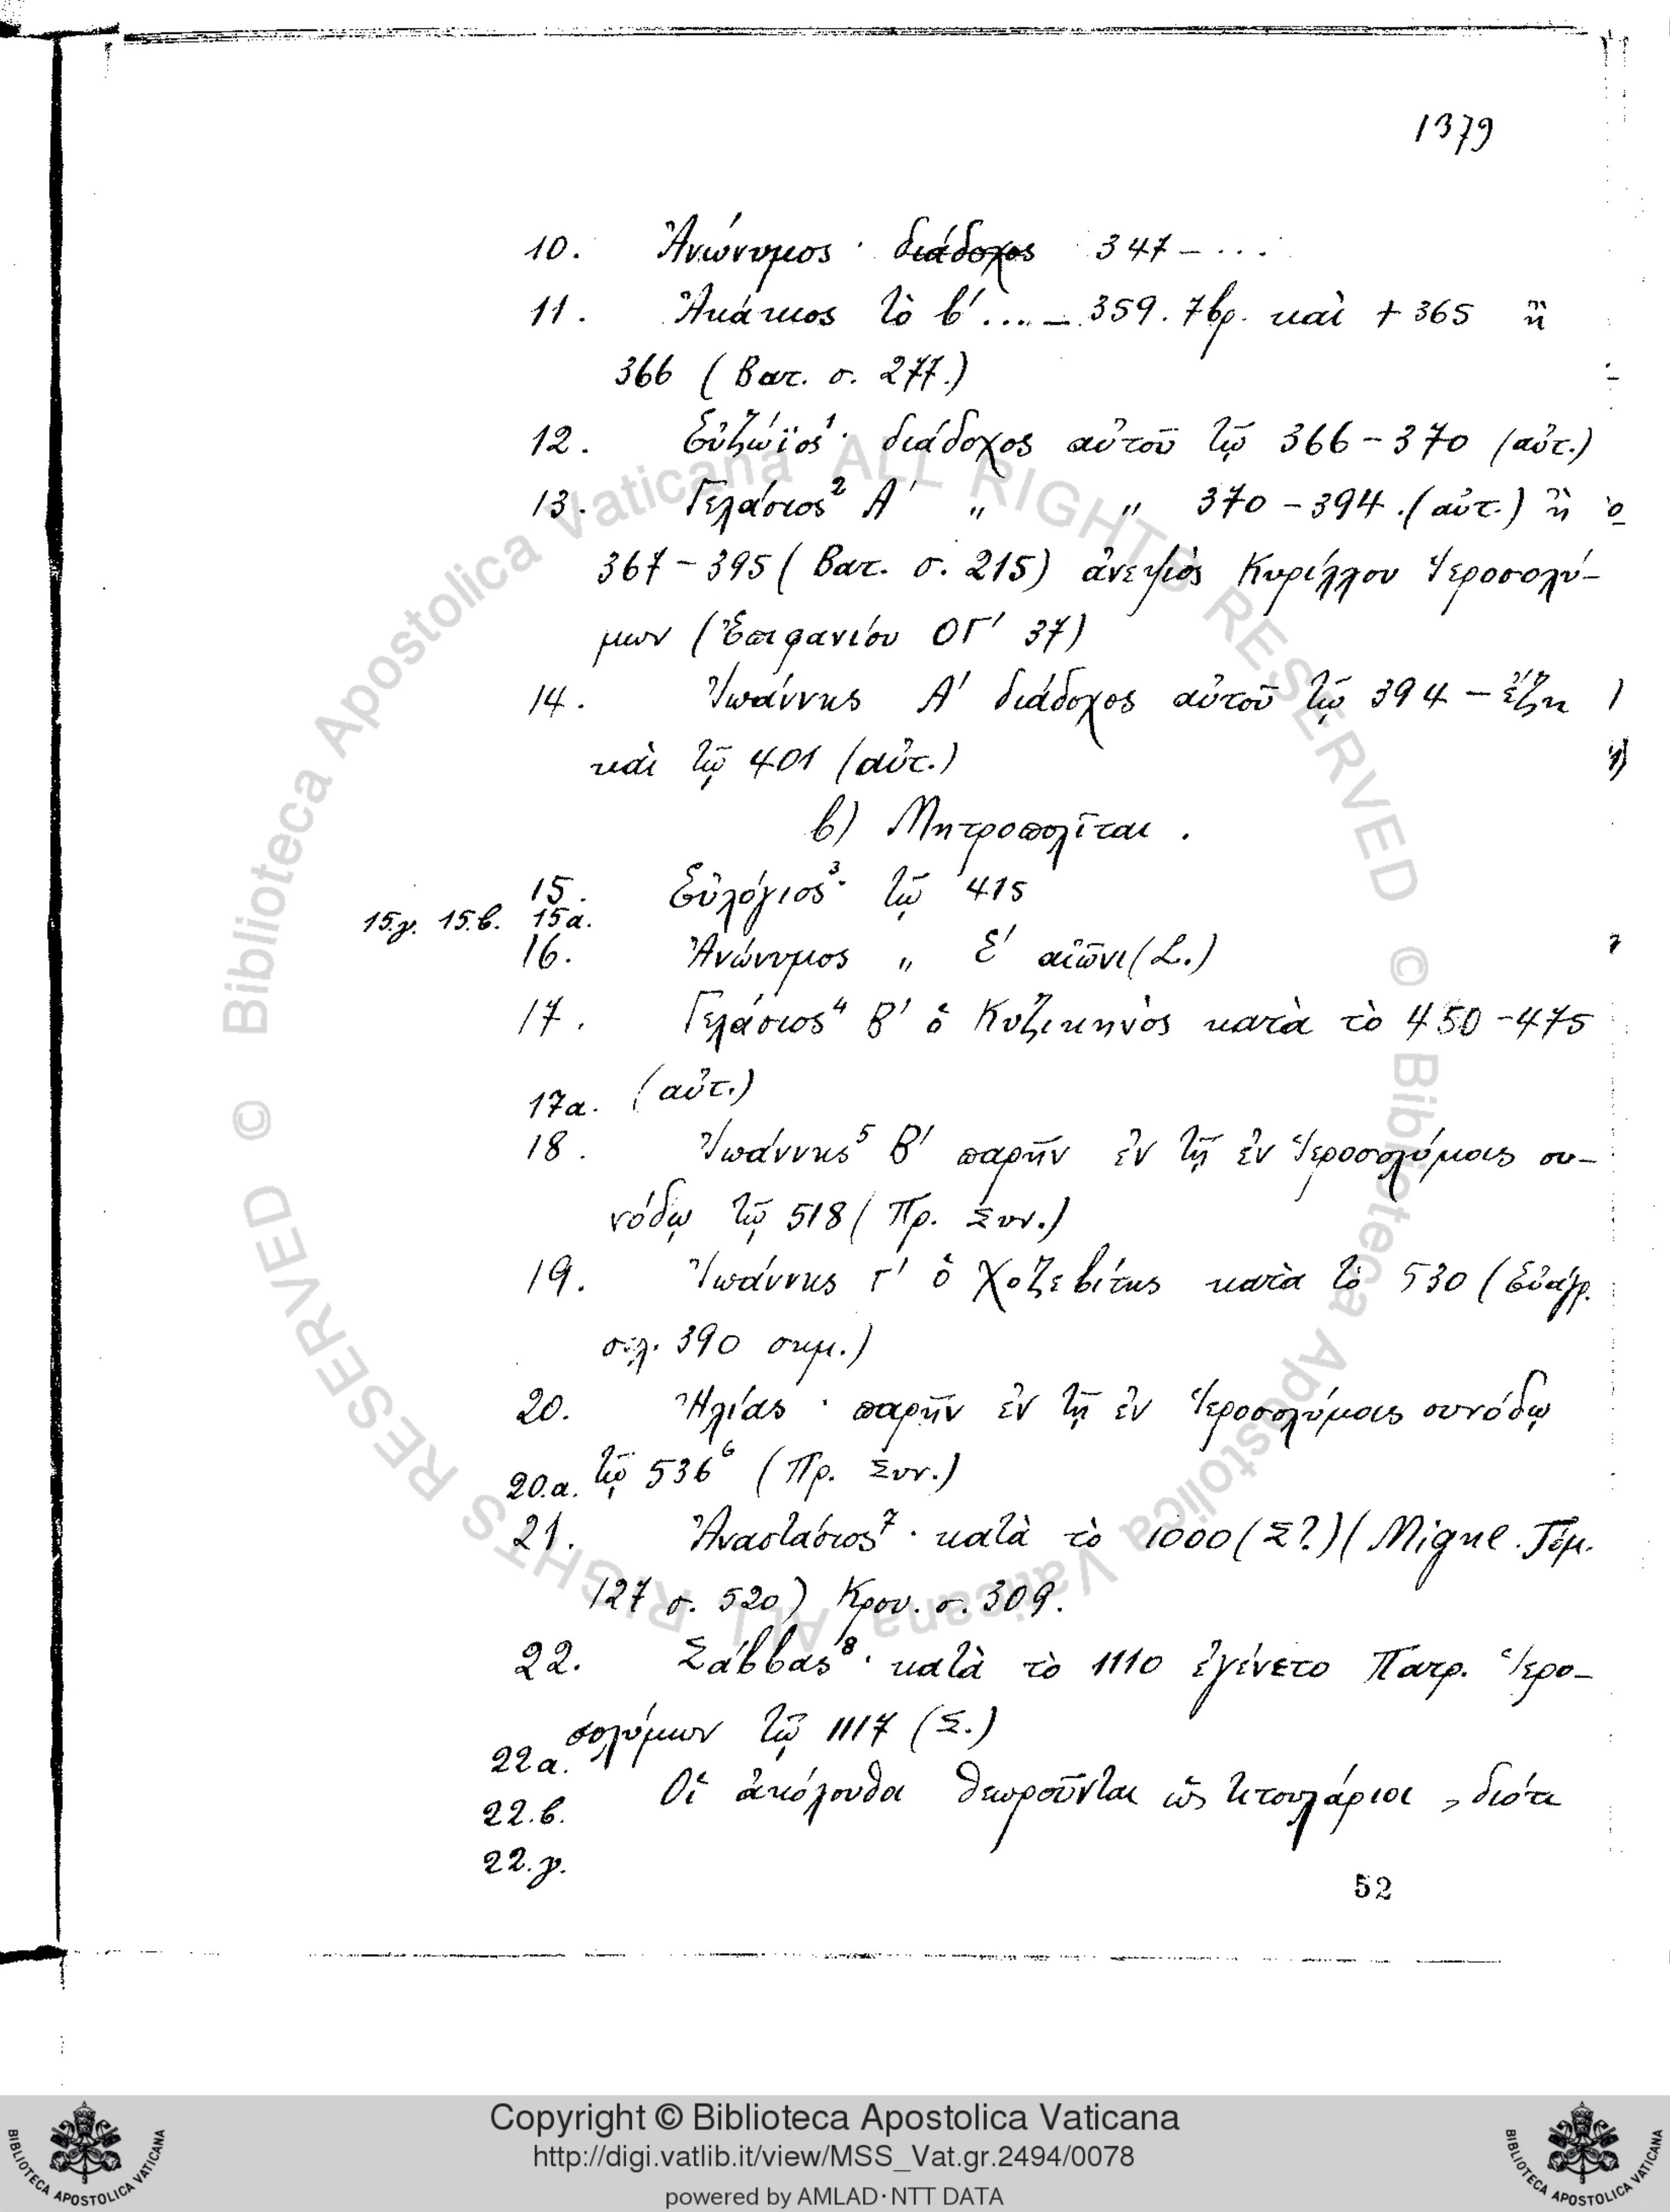 1379
10. Ἀνώνυμος · διάδοχος 347 – ...
11. Ἀκάκιος τὸ β′ ... – 359. 7βρ. καὶ + 365 ἢ
366 (Βατ. σ. 277.)
12. Εὐζώϊος¹· διάδοχος αὐτοῦ τῷ 366 – 370 (αὐτ.)
13. Γελάσιος² Α′ „ „ 370 – 394. (αὐτ.) ἢ
367 – 395 (Βατ. σ. 215) ἀνεψιὸς Κυρίλλου Ἱεροσολύ-
μων (Ἐπιφανίου ΟΓ′ 37)
14. Ἰωάννης Α′ διάδοχος αὐτοῦ τῷ 394 – ἔζη
καὶ τῷ 401 (αὐτ.)
β) Μητροπολῖται.
15. Εὐλόγιος³· τῷ 415
15.γ. 15.β. 15α.
16. Ἀνώνυμος „ Ε′ αἰῶνι (L.)
17. Γελάσιος⁴ Β′ ὁ Κυζικηνὸς κατὰ τὸ 450 – 475
17α. (αὐτ.)
18. Ἰωάννης⁵ Β′ παρῆν ἐν τῇ ἐν Ἱεροσολύμοις συ-
νόδῳ τῷ 518 (Πρ. Συν.)
19. Ἰωάννης Γ′ ὁ Χοζεβίτης κατὰ τὸ 530 (Εὐάγρ.
σελ. 390 σημ.)
20. Ἠλίας · παρῆν ἐν τῇ ἐν Ἱεροσολύμοις συνόδῳ
20.α. τῷ 536⁶ (Πρ. Συν.)
21. Ἀναστάσιος⁷ · κατὰ τὸ 1000 (Σ?) (Migne. Τόμ.
127 σ. 520) Κρου. σ. 309.
22. Σάββας⁸ · κατὰ τὸ 1110 ἐγίνετο Πατρ. Ἱερο-
σολύμων τῷ 1117 (Σ.)
22α.
Οἱ ἀκόλουθα θεωροῦνται ὡς τιτουλάριοι, διότι
22.β.
22.γ.
52
© Biblioteca Apostolica Vaticana ALL RIGHTS RESERVED © Biblioteca Apostolica Vaticana ALL RIGHTS RESERVED
Copyright © Biblioteca Apostolica Vaticana
http://digi.vatlib.it/view/MSS_Vat.gr.2494/0078
powered by AMLAD·NTT DATA
BIBLIOTECA APOSTOLICA VATICANA
BIBLIOTECA APOSTOLICA VATICANA